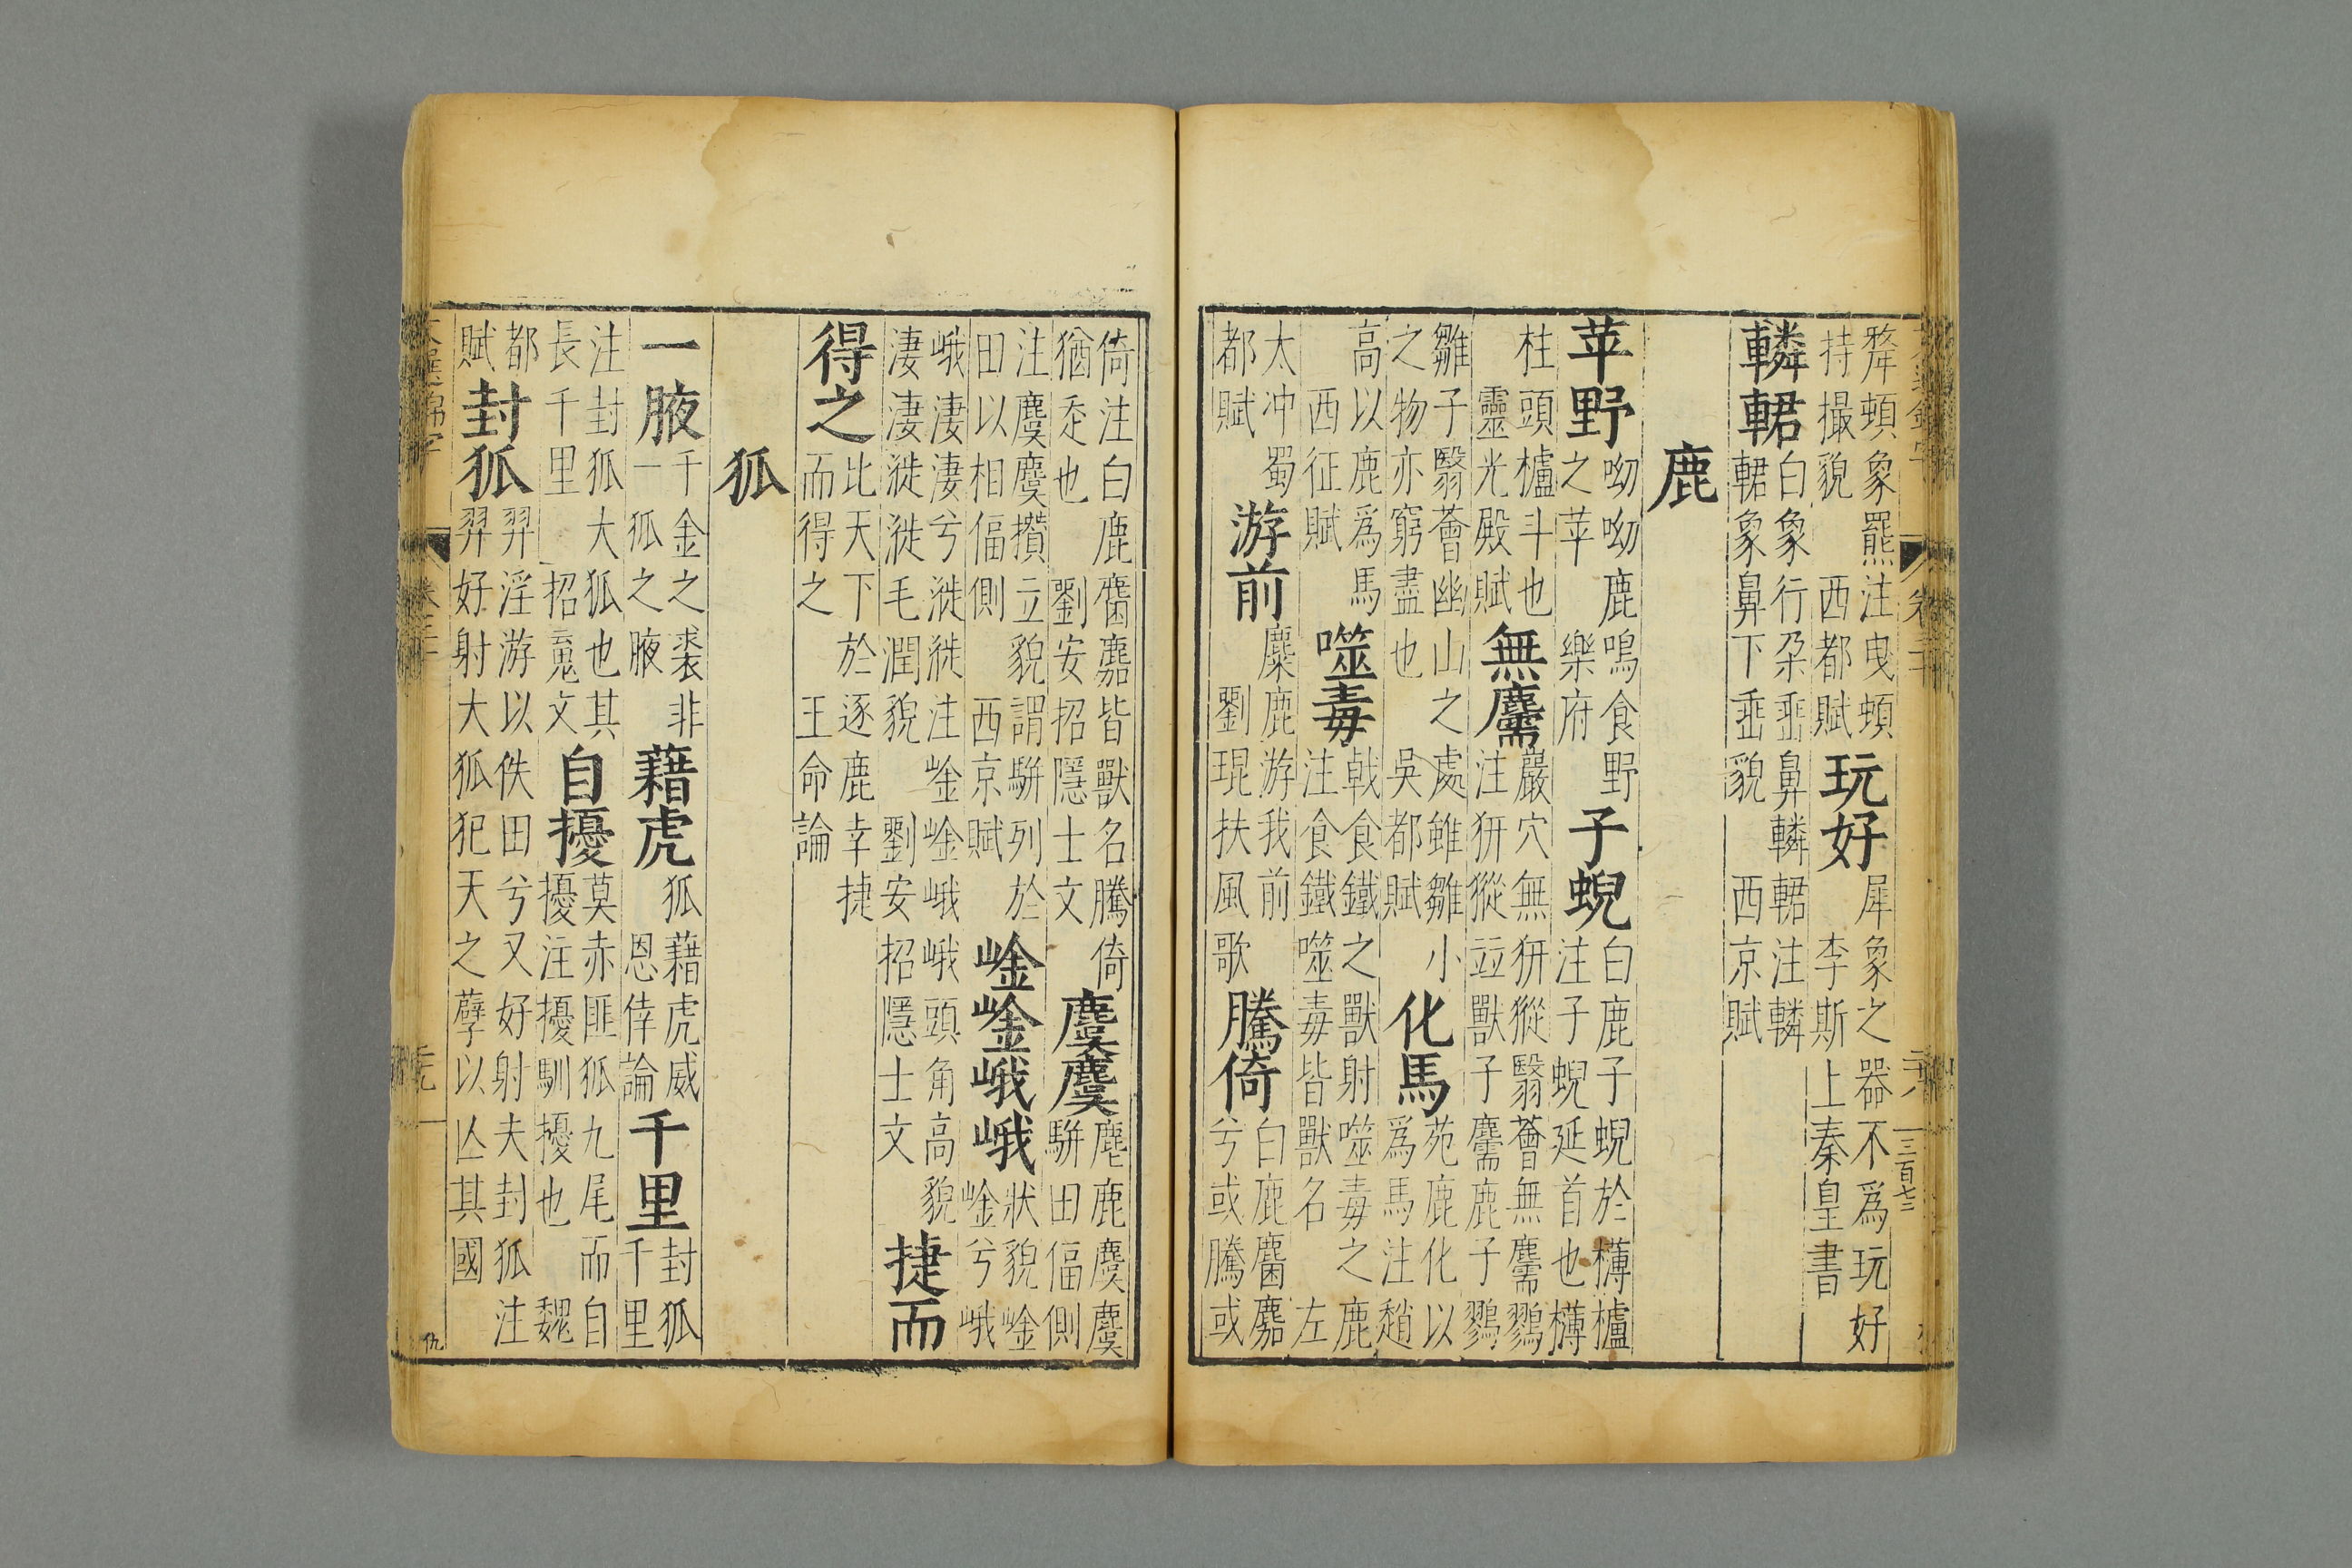 犛頓象羆注曳頓持撮貌 西都賦 玩好 犀象之器不爲玩好 李斯上秦皇書
轔輑 白象行孕垂鼻轔輑注轔輑象鼻下垂貌 西京賦
鹿
苹野 呦呦鹿鳴食野之苹 樂府 子蜺 白鹿子蜺於欂櫨注子蜺延首也欂
柱頭櫨斗也 靈光殿賦 無麡 嚴穴無豣豵翳薈無麡鷚注豣豵竝獸子麡鹿子鷚
雛子翳薈幽山之處雖雛小之物亦窮盡也 吳都賦 化馬 苑鹿化以爲馬注趙
高以鹿爲馬 西征賦 噬毒 戟食鐵之獸射噬毒之鹿注食鐵噬毒皆獸名 左
太冲蜀都賦 游前 麋鹿游我前 劉琨扶風歌 騰倚 白鹿麏麚兮或騰或
三百七三
倚注白鹿麏麚皆獸名騰倚猶也 劉安招隱士文 麌麌 麀鹿麌麌駢田偪側
注麌麌攢立貌謂駢列於田以相偪側 西京賦 崟崟峨峨 狀貌崟崟兮峨
峨淒淒兮漇漇注崟崟峨峨頭角高貌淒淒漇漇毛潤貌 劉安招隱士文 捷而
得之 比天下於逐鹿幸捷而得之 王命論
狐
一腋 千金之裘非一狐之腋 藉虎 狐藉虎威 恩倖論 千里 封狐千里
注封狐大狐也其長千里 招䰟文 自擾 莫赤匪狐九尾而自擾注擾馴擾也 魏
都賦 封狐 羿淫游以佚田兮又好射夫封狐注羿好射大狐犯天之孽以亾其國